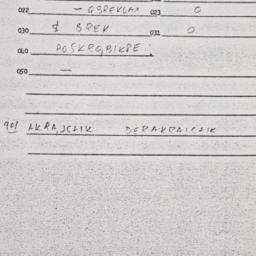 022 - GBREKLAX 023 0
030 $ BREK 031 0
040 POSKROBIKRE.
050 -
901 AKRAJCZIK DERAKRAICZIK